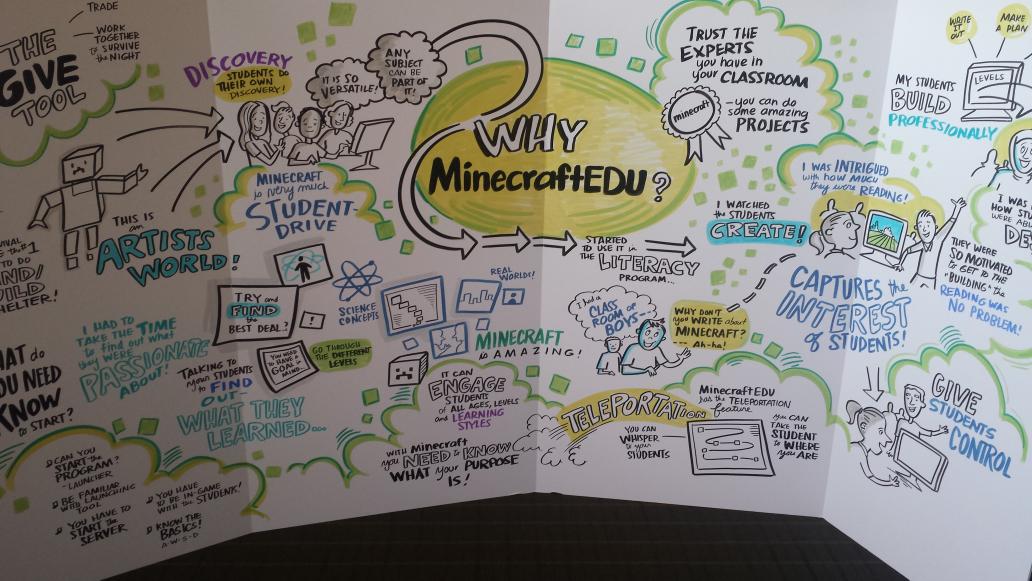 TRADE
WORK
TOGETHER
to SURVIVE
the NIGHT
THE
GIVE
TOOL
THIS IS
an
ARTISTS
WORLD!
I HAD to
TAKE the TIME
to find out what
they WERE
PASSIONATE
ABOUT!
WHAT do
YOU NEED
to KNOW
to START?
CAN YOU
START the
PROGRAM?
- LAUNCHER
BE FAMILIAR
with LAUNCHING
TOOL
YOU HAVE TO
START the
SERVER
YOU HAVE
TO BE IN-GAME
WITH the STUDENTS!
KNOW the
BASICS!
A-W-S-D
DISCOVERY
STUDENTS DO
THEIR OWN
DISCOVERY!
IT IS SO
VERSATILE!
ANY
SUBJECT
CAN BE
PART OF
IT!
MINECRAFT
is very much
STUDENT-
DRIVE
TRY and
FIND the
BEST DEAL?
!
SCIENCE
CONCEPTS
REAL
WORLD!
YOU NEED to
HAVE a
GOAL in
MIND...
GO THROUGH
the DIFFERENT
LEVELS
MINECRAFT
is AMAZING!
TALKING to
your STUDENTS
to FIND
OUT
WHAT THEY
LEARNED...
IT CAN
ENGAGE
STUDENTS
of ALL AGES, LEVELS
and LEARNING
STYLES
WITH MINECRAFT
you NEED to KNOW
WHAT your PURPOSE
IS!
WHY
MinecraftEDU?
STARTED
to USE IT in
the LITERACY
PROGRAM...
I had a
CLASS
ROOM of
BOYS
WHY DON'T
you WRITE about
MINECRAFT?
Ah-ha!
TELEPORTATION
YOU CAN
WHISPER
to your
STUDENTS
MinecraftEDU
has the TELEPORTATION
feature
YOU CAN
TAKE the
STUDENT
to WHERE
YOU ARE
TRUST THE
EXPERTS
you HAVE in
your CLASSROOM
minecraft
-you can do
some amazing
PROJECTS
I WATCHED
the STUDENTS
CREATE!
I WAS INTRIGUED
with how MUCH
they were READING!
CAPTURES the
INTEREST
of STUDENTS!
WRITE
IT
OUT
MAKE
A PLAN
LEVELS
MY STUDENTS
BUILD
PROFESSIONALLY
THEY WERE
SO MOTIVATED
to GET to the
"BUILDING" the
READING WAS
NO PROBLEM!
GIVE
STUDENTS
CONTROL